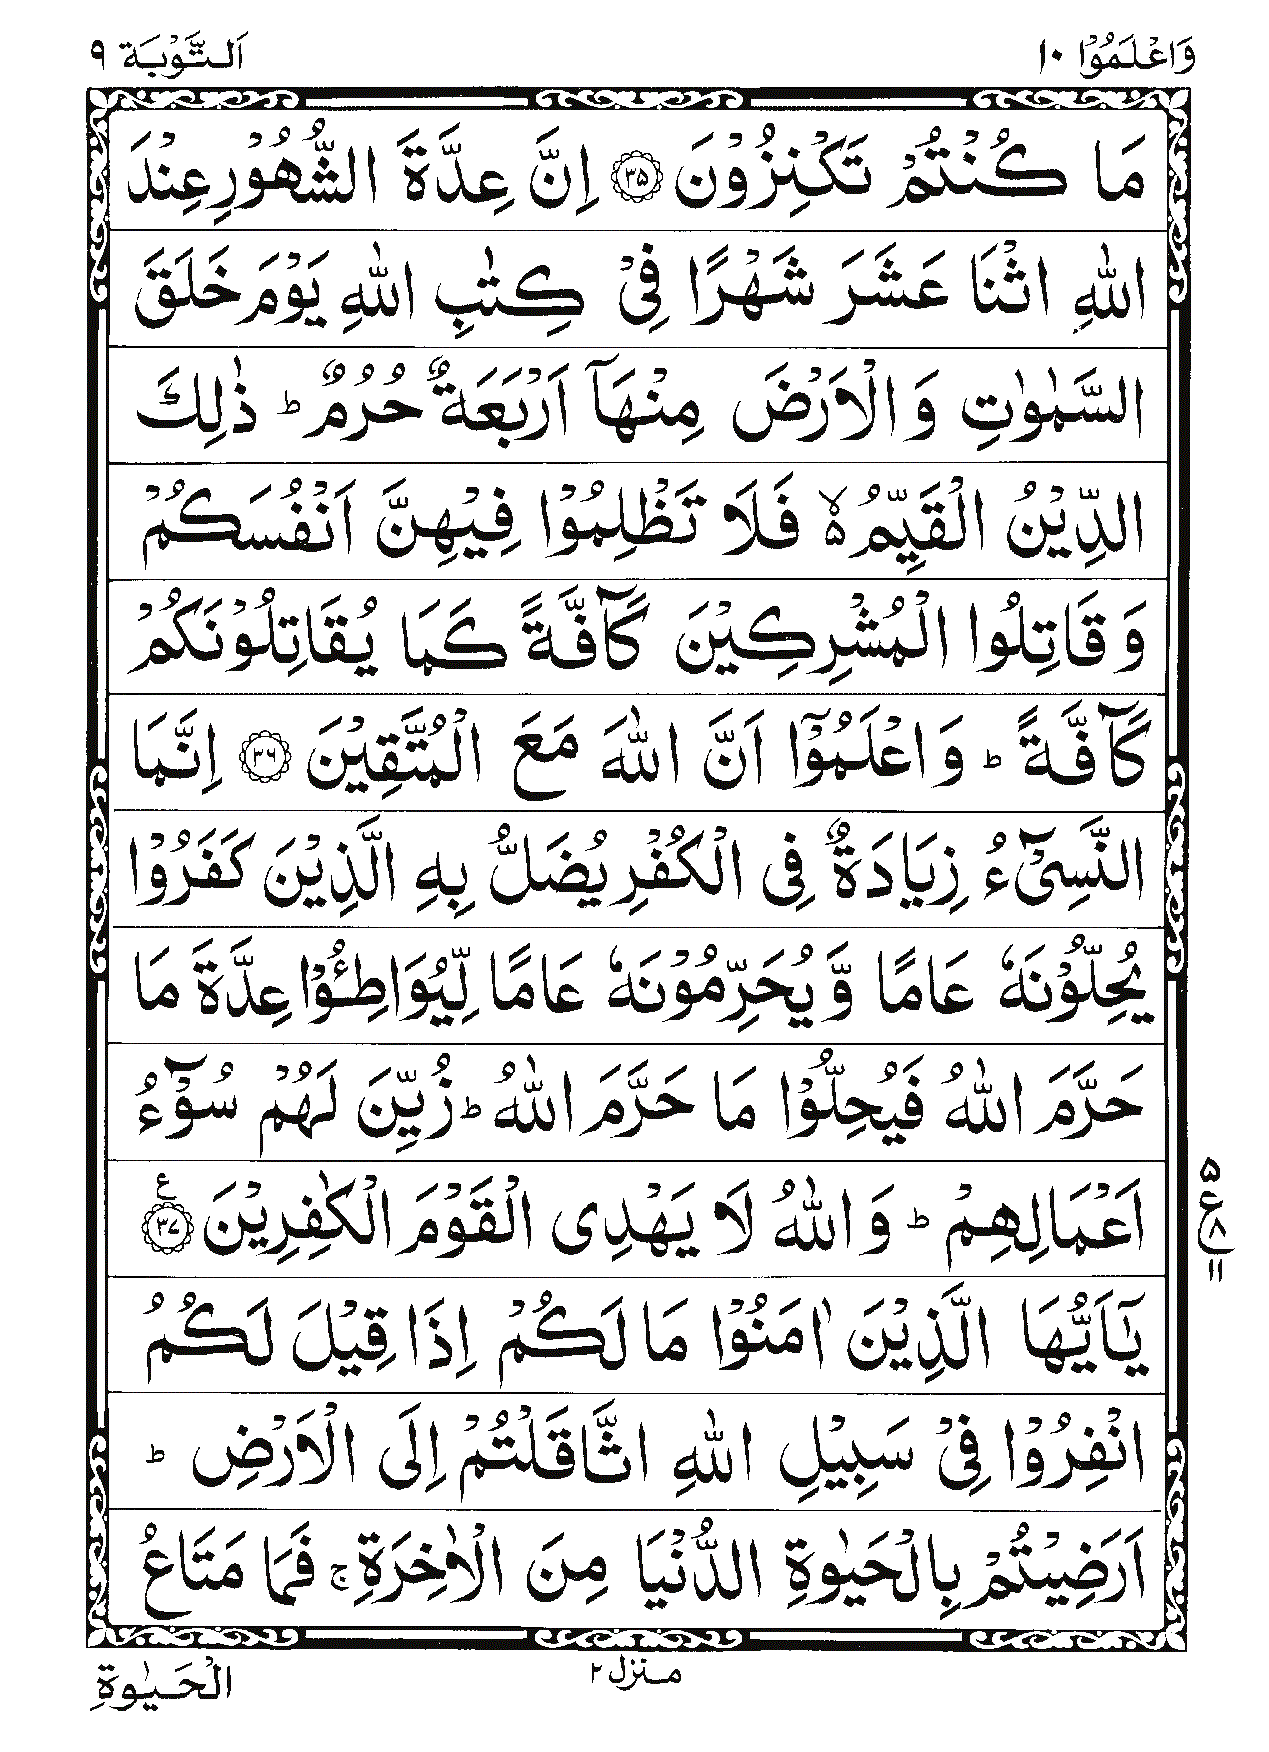 وَاعْلَمُوْٓا ١٠ اَلتَّوْبَة ٩
مَا كُنْتُمْ تَكْنِزُوْنَ ۝٣٥ اِنَّ عِدَّةَ الشُّهُوْرِ عِنْدَ
اللّٰهِ اثْنَا عَشَرَ شَهْرًا فِیْ كِتٰبِ اللّٰهِ يَوْمَ خَلَقَ
السَّمٰوٰتِ وَ الْاَرْضَ مِنْهَآ اَرْبَعَةٌ حُرُمٌ ؕ ذٰلِكَ
الدِّيْنُ الْقَيِّمُ ۙ۬ فَلَا تَظْلِمُوْا فِيْهِنَّ اَنْفُسَكُمْ
وَ قَاتِلُوا الْمُشْرِكِيْنَ كَآفَّةً كَمَا يُقَاتِلُوْنَكُمْ
كَآفَّةً ؕ وَ اعْلَمُوْٓا اَنَّ اللّٰهَ مَعَ الْمُتَّقِيْنَ ۝٣٦ اِنَّمَا
النَّسِیْٓءُ زِيَادَةٌ فِی الْكُفْرِ يُضَلُّ بِهِ الَّذِيْنَ كَفَرُوْا
يُحِلُّوْنَهٗ عَامًا وَّ يُحَرِّمُوْنَهٗ عَامًا لِّيُوَاطِـُٔوْا عِدَّةَ مَا
حَرَّمَ اللّٰهُ فَيُحِلُّوْا مَا حَرَّمَ اللّٰهُ ؕ زُيِّنَ لَهُمْ سُوْٓءُ
اَعْمَالِهِمْ ؕ وَ اللّٰهُ لَا يَهْدِی الْقَوْمَ الْكٰفِرِيْنَ ۝٣٧ ع
٥ ع ٨ ١١
يٰٓاَيُّهَا الَّذِيْنَ اٰمَنُوْا مَا لَكُمْ اِذَا قِيْلَ لَكُمُ
انْفِرُوْا فِیْ سَبِيْلِ اللّٰهِ اثَّاقَلْتُمْ اِلَى الْاَرْضِ ؕ
اَرَضِيْتُمْ بِالْحَيٰوةِ الدُّنْيَا مِنَ الْاٰخِرَةِ ۚ فَمَا مَتَاعُ
منزل ٢
الْحَيٰوةِ